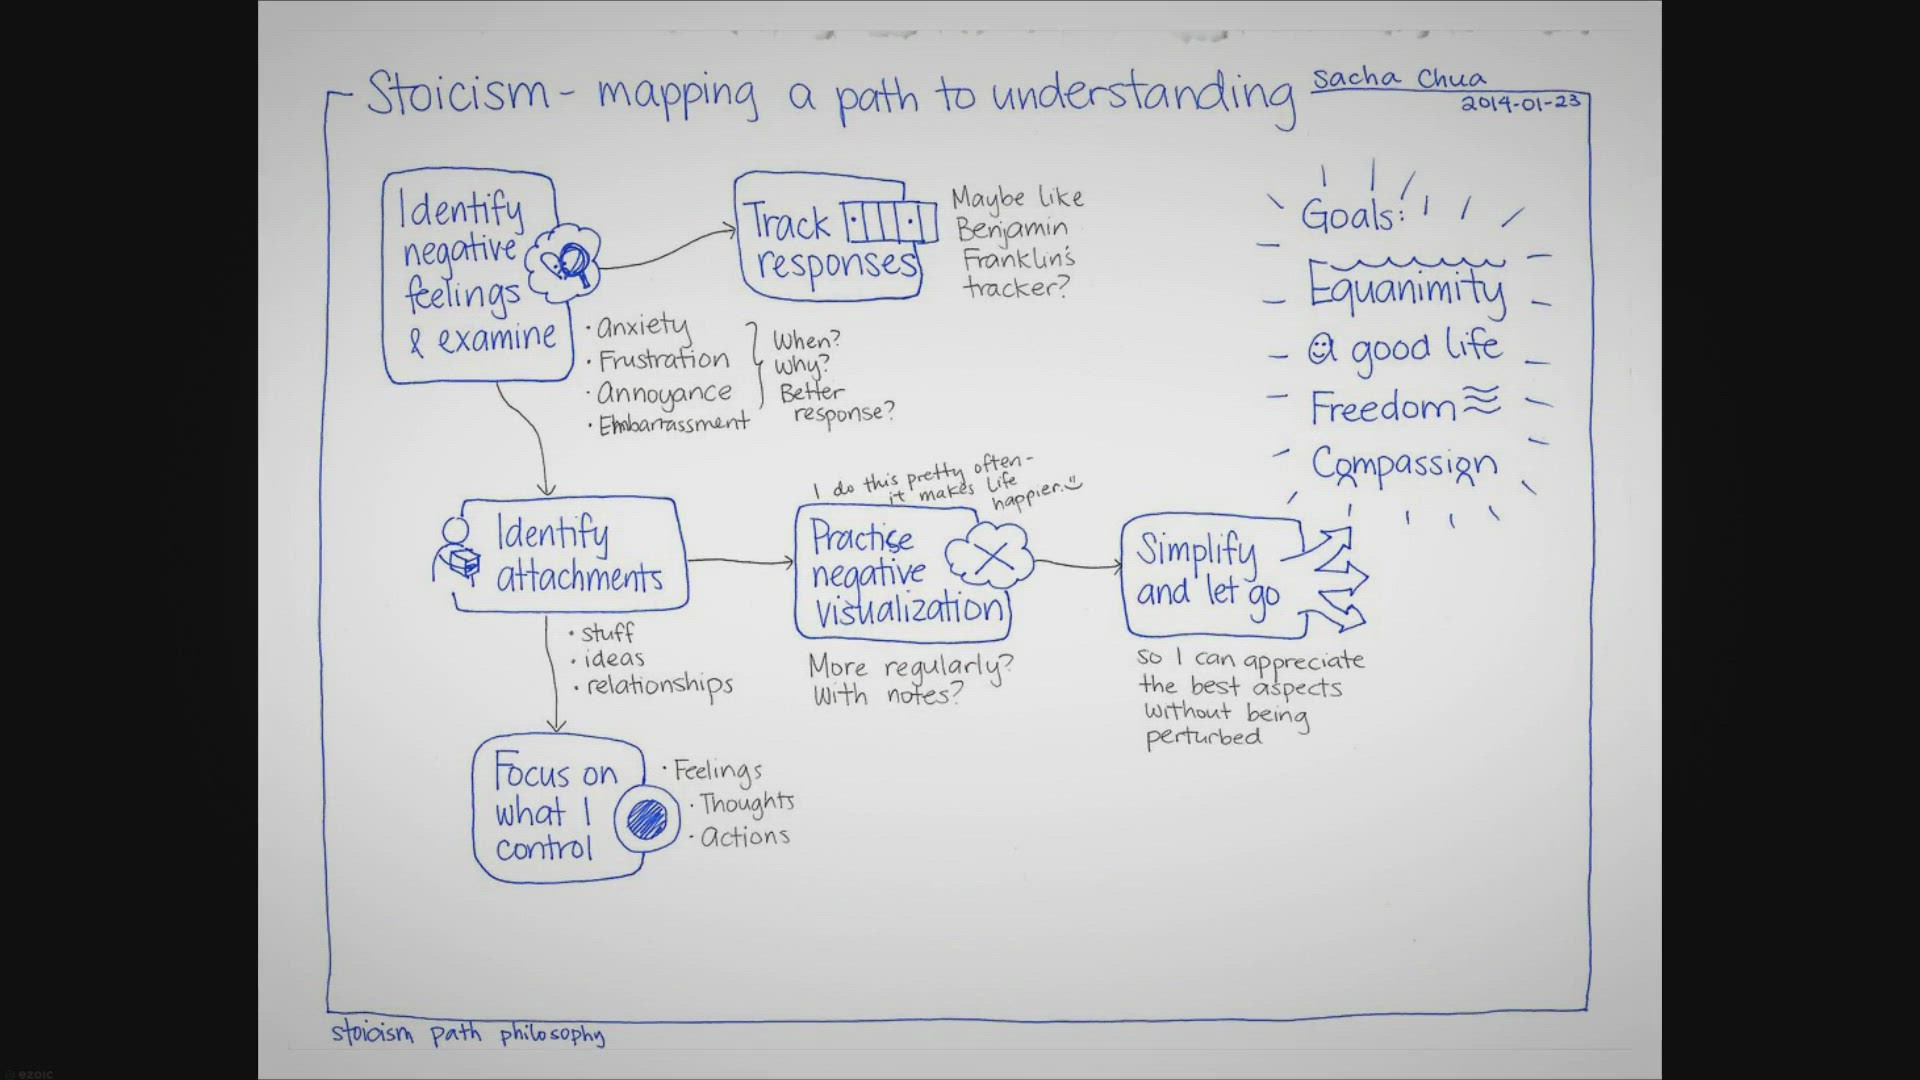 Stoicism - mapping a path to understanding
Sacha Chua
2014-01-23
Identify
negative
feelings
& examine
Track
responses
Maybe like
Benjamin
Franklin's
tracker?
• Anxiety
• Frustration
• Annoyance
• Embarrassment
When?
Why?
Better
response?
Goals:
Equanimity
a good life
Freedom
Compassion
Identify
attachments
• stuff
• ideas
• relationships
I do this pretty often-
it makes life
happier.
Practise
negative
visualization
More regularly?
With notes?
Simplify
and let go
so I can appreciate
the best aspects
without being
perturbed
Focus on
what I
control
• Feelings
• Thoughts
• Actions
stoicism path philosophy
ezoic